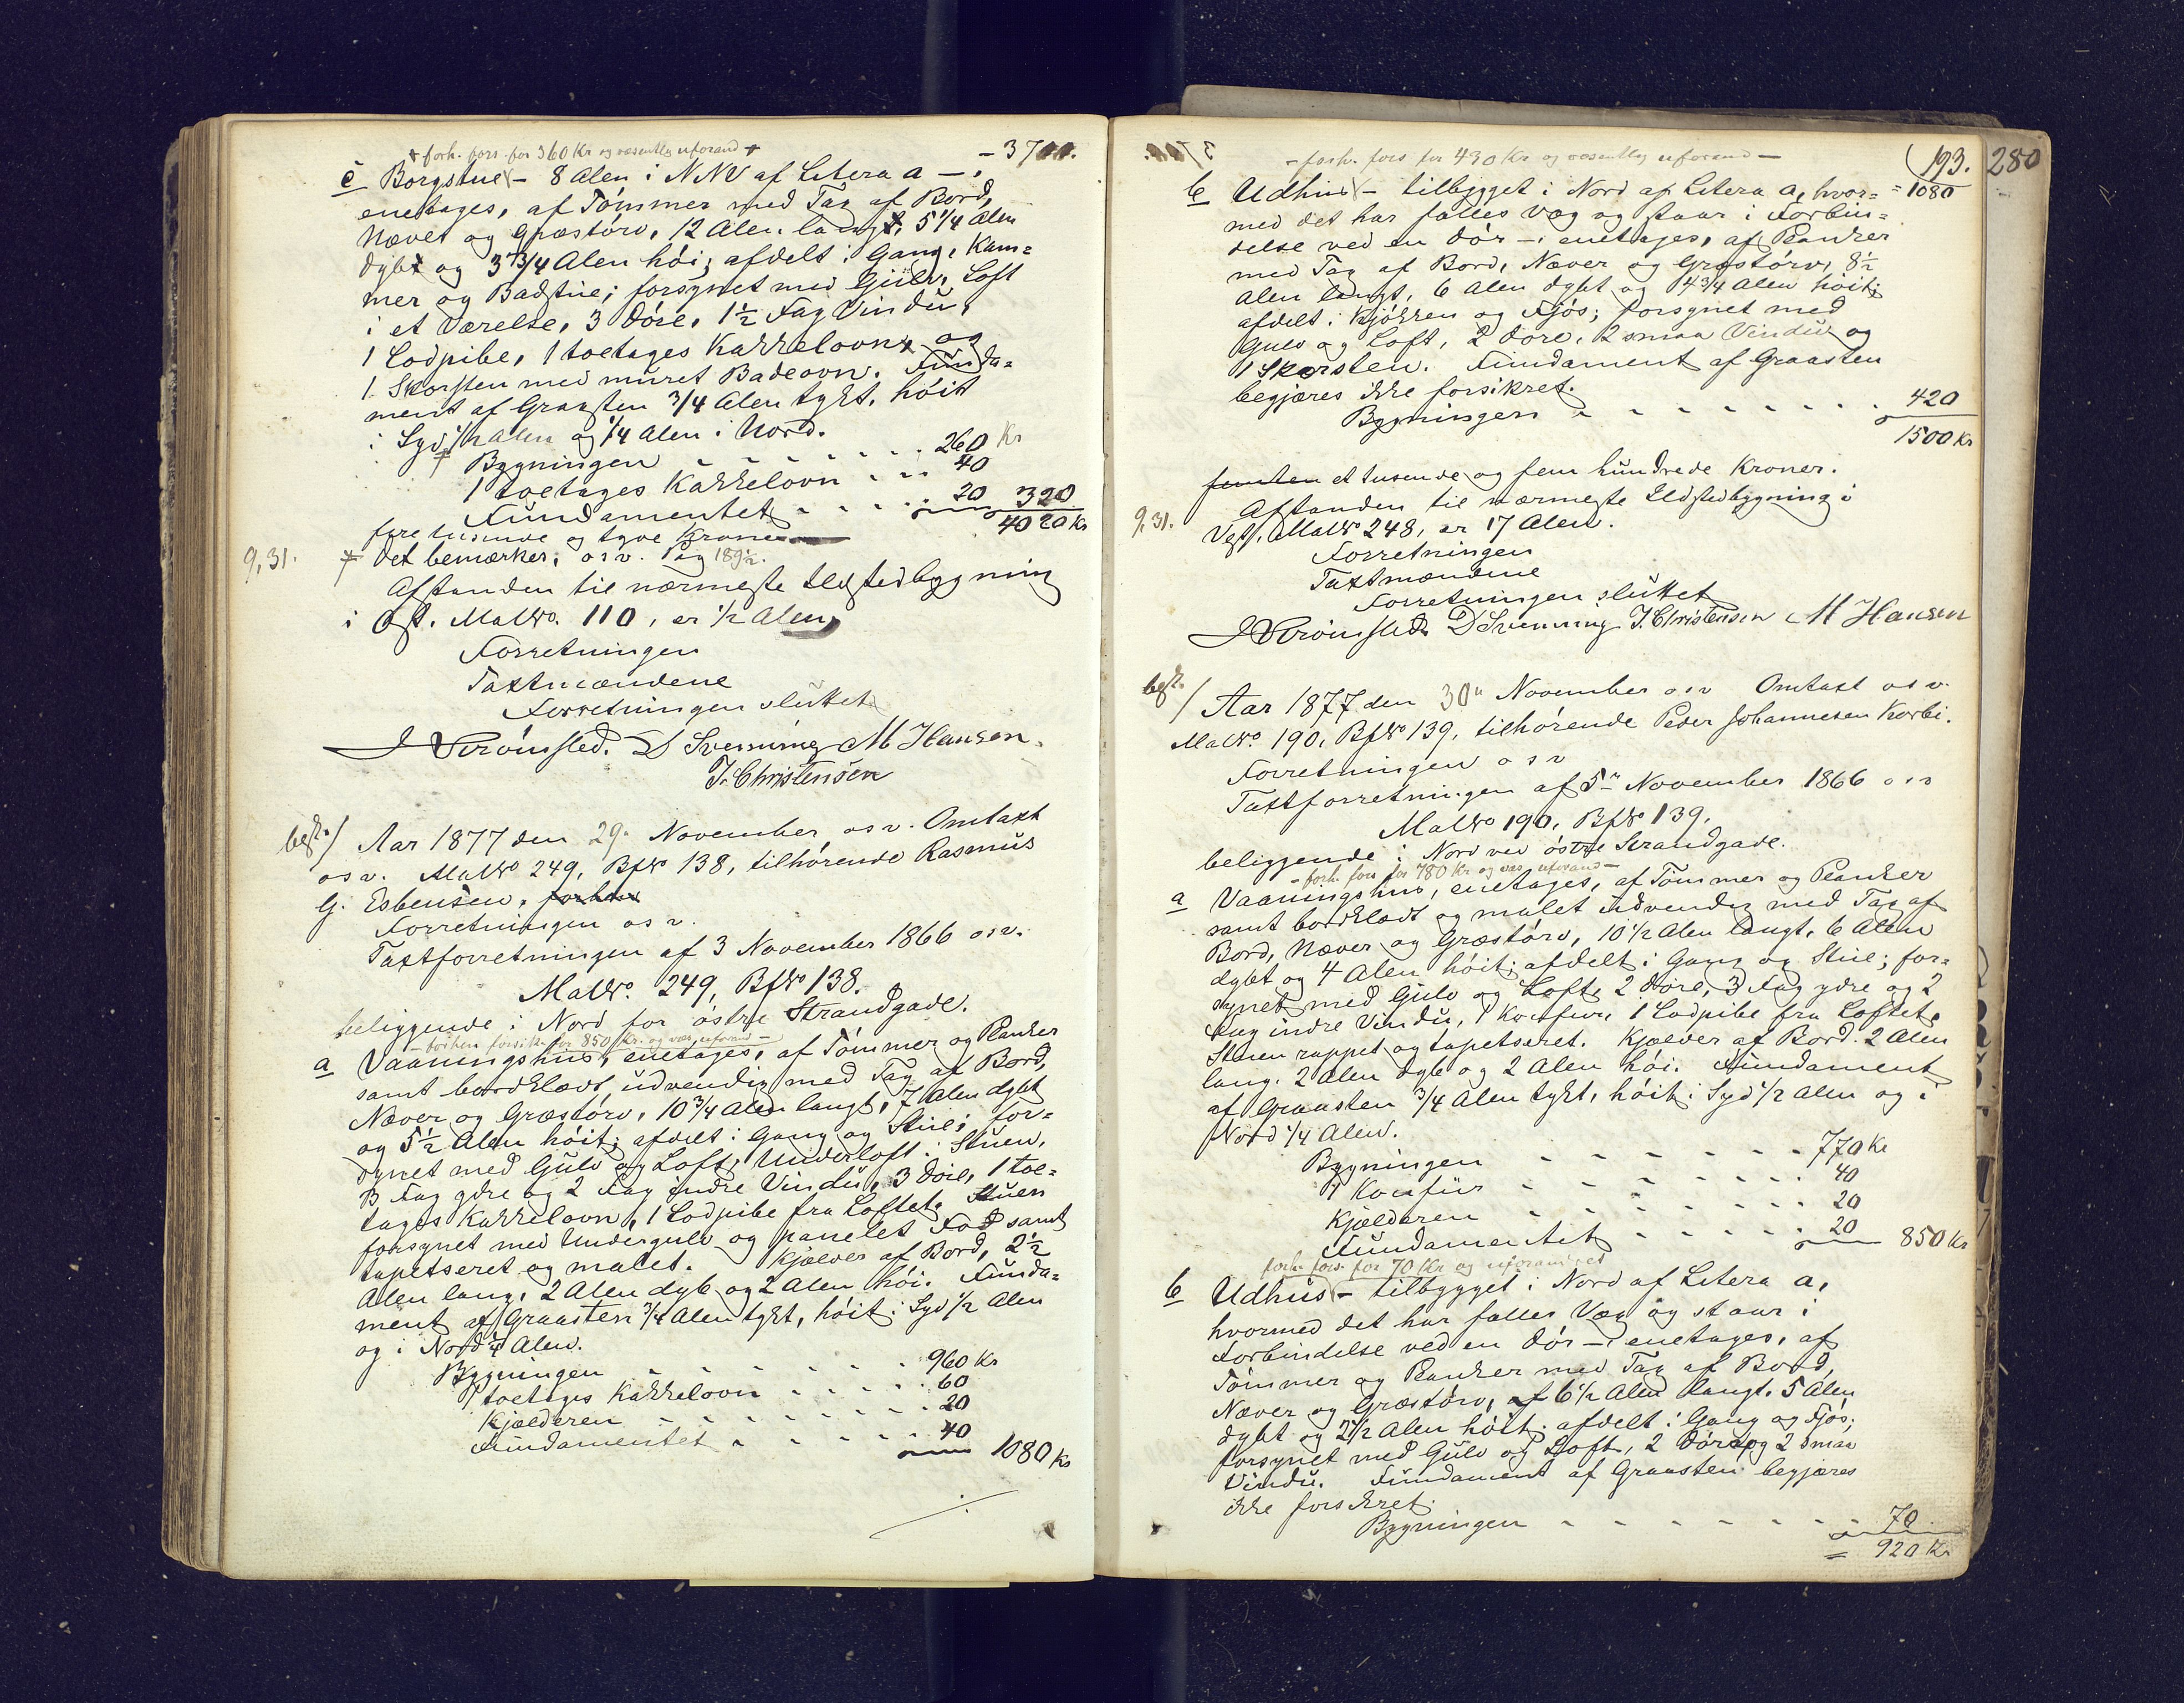 + forh. fors. for 360 Kr og væsentlig uforand +
- 3700.
c Borgstue - 8 Alen i NNV af Litera a - ,
enetages, af Tømmer med Tag af Bord,
Næver og Græstørv, 12 Alen lang, 5 1/4 Alen
dyb og 3 3/4 Alen høi; afdelt i Gang, Kam=
mer og Badstue; forsynet med Gulv, Loft
i et Værelse, 3 Døre, 1 1/2 Fag Vindu,
1 Lodpibe, 1 toetages Kakkelovn og
1 Skorsten med muret Badeovn. Funda=
ment af Graasten 3/4 Alen tykt, høit
i Syd 1/2 Alen og 1/4 Alen i Nord.
+ Bygningen - - - - - - 260 Kr
1 toetages Kakkelovn - - - 40
Fundamentet - - - - 20 320
4020 Kr
fire tusende og tyve Kroner
9,31. + Det bemærkes, osv. Pag 189 1/2.
Afstanden til nærmeste Ildstedbygning
i Øst, MatNo. 110, er 1/2 Alen
Forretningen
Taxtmændene
Forretningen sluttet
J Strømsted. D Svenning M Hansen.
J. Christensen
besk./ Aar 1877 den 29. November osv. Omtaxt
osv. MatNo 249, BfNo 138, tilhørende Rasmus
G. Esbensen, forhen
Forretningen osv.
Taxtforretningen af 3 November 1866 osv.
MatNo. 249, BfNo 138.
beliggende i Nord for østre Strandgade.
- forhen forsik. for 850 Kr. og væs. uforand -
a Vaaningshus, enetages, af Tømmer og Planker
samt bordklædt udvendig med Tag af Bord,
Næver og Græstørv, 10 3/4 Alen langt, 7 Alen dybt
og 5 1/2 Alen høit; afdelt i Gang og Stue; for=
synet med Gulv og Loft, Underloft i Stuen,
3 Fag ydre og 2 Fag indre Vindu, 3 Døre, 1 toe=
tages Kakkelovn, 1 Lodpibe fra Loftet. Stuen
forsynet med Undergulv og panelet Fod samt
tapetseret og malet. Kjelder af Bord, 2 1/2
Alen lang, 2 Alen dyb og 2 Alen høi. Funda=
ment af Graasten 3/4 Alen tykt, høit i Syd 1/2 Alen
og i Nord 1/4 Alen.
Bygningen - - - - - - 960 Kr
1 toetages Kakkelovn - - - - 60
Kjælderen - - - - - - - 20
Fundamentet - - - - - 40
1080 Kr
193. 280
- forh. fors for 430 Kr og væsentlig uforand -
b Udhus - tilbygget i Nord af Litera a, hvor= = 1080
med det har fælles Væg og staar i Forbin=
delse ved en Dør - , enetages, af Planker
med Tag af Bord, Næver og Græstørv, 8 1/2
Alen langt, 6 Alen dybt og 4 3/4 Alen høit;
afdelt i Kjøkken og Fjøs; forsynet med
Gulv og Loft, 2 Døre, 2 smaa Vindu og
1 Skorsten. Fundament af Graasten
begjæres ikke forsikret.
Bygningen - - - - - - - - 420
1500 Kr
femten et tusende og fem hundrede Kroner.
9,31. Afstanden til nærmeste Ildstedbygning i
Vest, MatNo 248, er 17 Alen.
Forretningen
Taxtmændene
Forretningen sluttet
J Strømsted D Svenning J. Christensen M Hansen
besk./ Aar 1877 den 30" November osv Omtaxt osv.
MatNo. 190, BfNo 139, tilhørende Peder Johannesen Korbi.
Forretningen osv
Taxtforretningen af 5" November 1866 osv
MatNo 190, BfNo 139,
beliggende i Nord ved østre Strandgade.
- forh. fors for 780 Kr og væs uforand -
a Vaaningshus, enetages, af Tømmer og Planker
samt bordklædt og malet udvendig med Tag af
Bord, Næver og Græstørv, 10 1/2 Alen langt, 6 Alen
dybt og 4 Alen høit; afdelt i Gang og Stue; for=
synet med Gulv og Loft, 2 Døre, 3 Fag ydre og 2
Fag indre Vindu, 1 Komfur, 1 Lodpibe fra Loftet.
Stuen rappet og tapetseret. Kjælder af Bord. 2 Alen
lang. 2 Alen dyb og 2 Alen høi. Fundament
af Graasten 3/4 Alen tykt, høit i Syd 1/2 Alen og i
Nord 1/4 Alen.
Bygningen - - - - - - 770 Kr
1 Komfur - - - - - - 40
Kjælderen - - - - - - 20
Fundamentet - - - - - 20 850 Kr
forh. fors. for 70 Kr og uforandret
b Udhus - tilbygget i Nord af Litera a,
hvormed det har fælles Væg og staar i
Forbindelse ved en Dør - , enetages, af
Tømmer og Planker med Tag af Bord,
Næver og Græstørv, 6 1/2 Alen langt, 5 Alen
dybt og 2 1/2 Alen høit; afdelt i Gang og Fjøs;
forsynet med Gulv og Loft, 2 Døre og 2 smaa
Vindu. Fundament af Graasten begjæres
ikke forsikret.
Bygningen - - - - - - - - 70
= 920 Kr